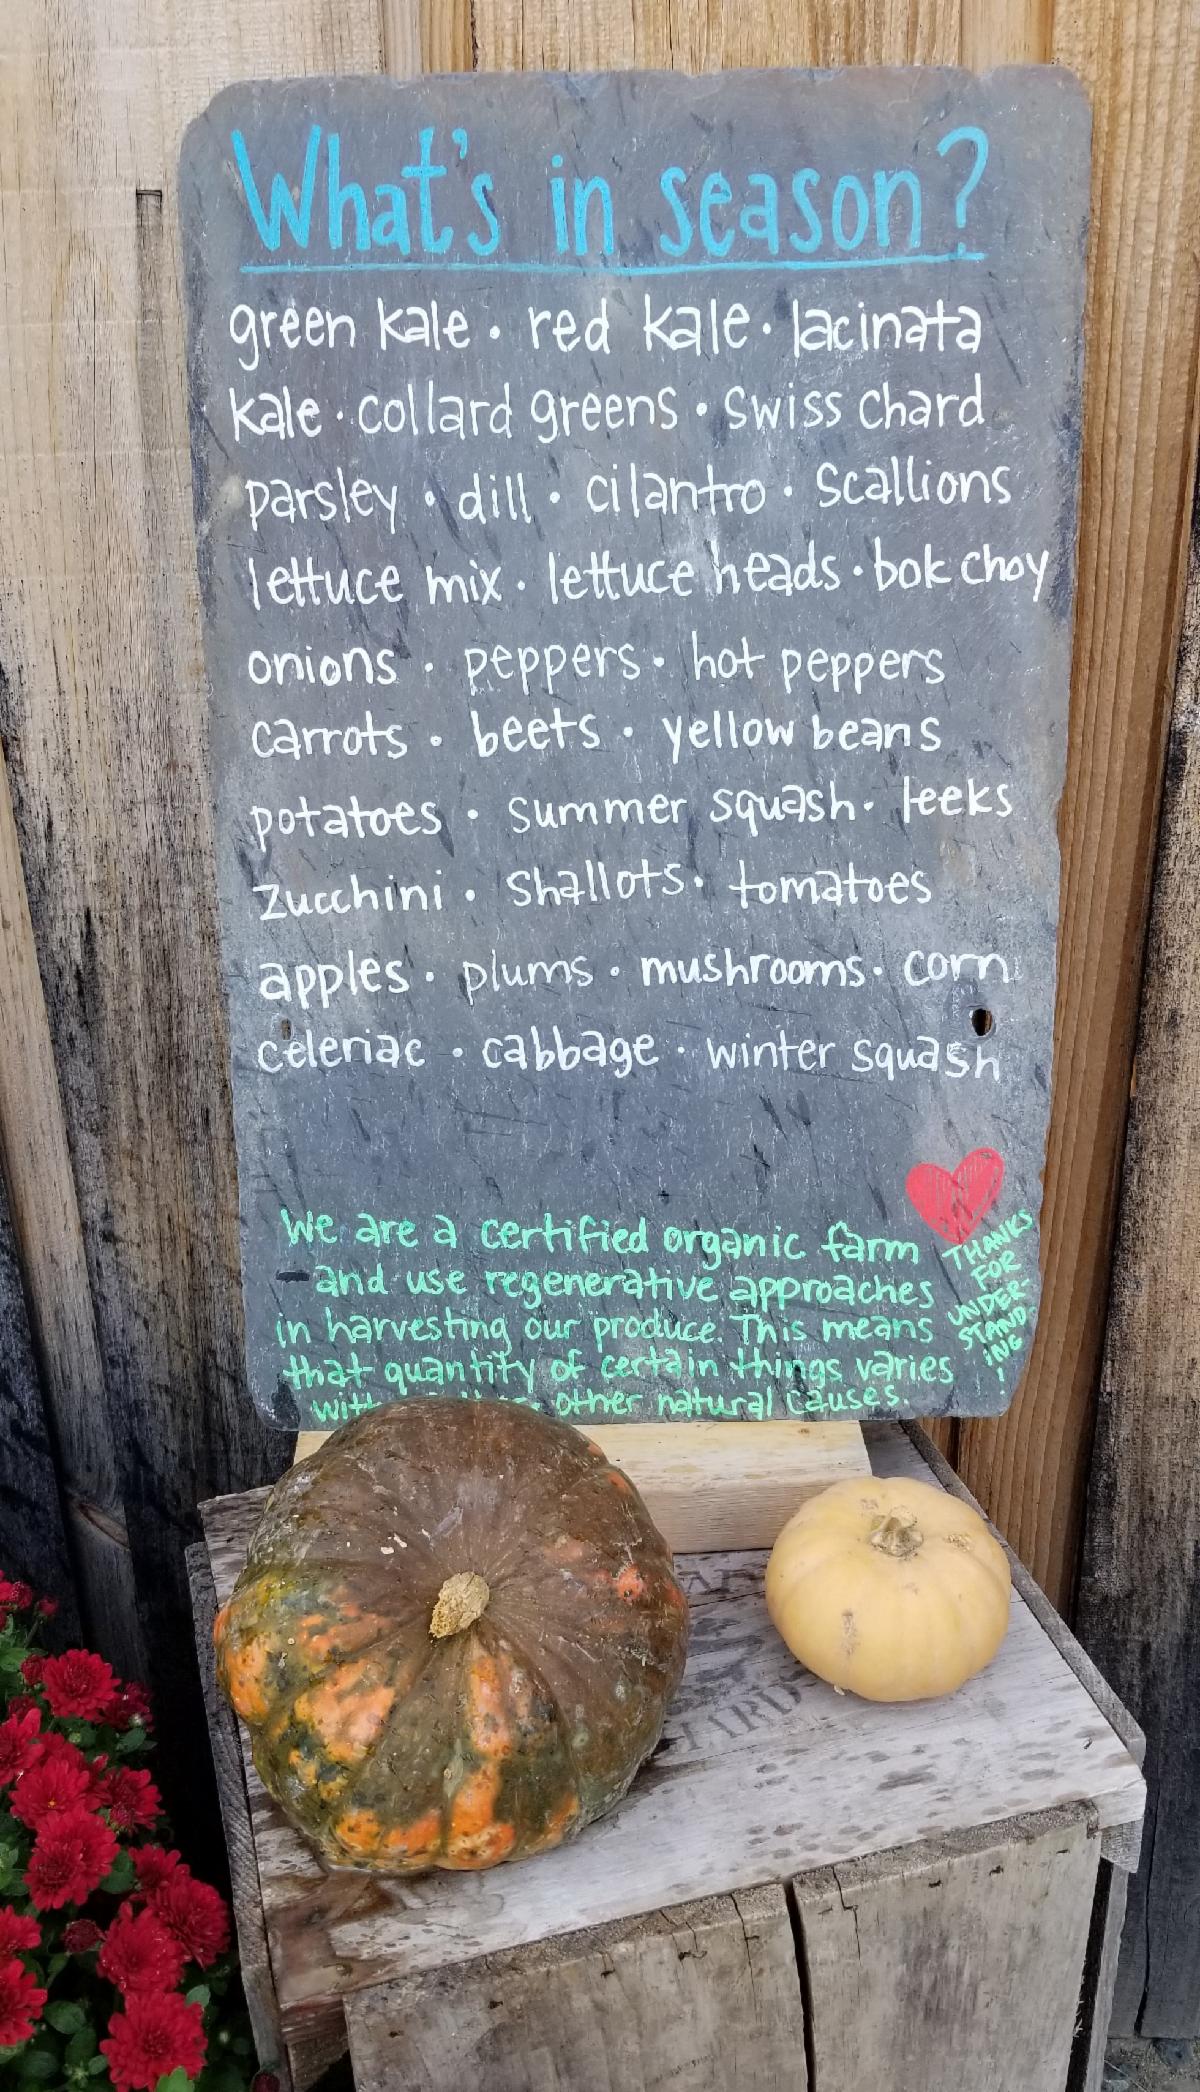 What's in season?
green kale · red kale · lacinata
kale · collard greens · swiss chard
parsley · dill · cilantro · scallions
lettuce mix · lettuce heads · bok choy
onions · peppers · hot peppers
carrots · beets · yellow beans
potatoes · summer squash · leeks
zucchini · shallots · tomatoes
apples · plums · mushrooms · corn
celeriac · cabbage · winter squash
We are a certified organic farm
and use regenerative approaches
in harvesting our produce. This means
that quantity of certain things varies
other natural causes.
THANKS
FOR
UNDER-
STAND-
ING
!